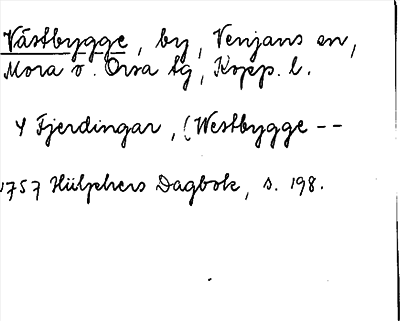 Västbygge, by, Venjans sn,
Mora o. Orsa tg, Kopp. l.
4 Fjerdingar, (Westbygge --
1757 Hülphers Dagbok, s. 198.